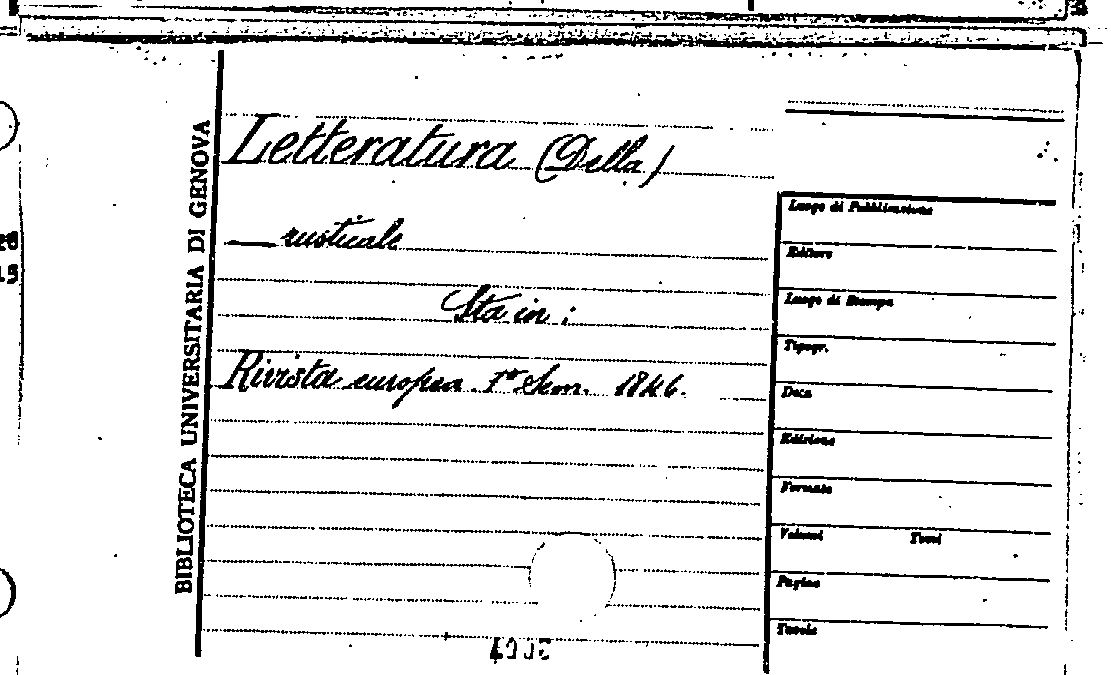 BIBLIOTECA UNIVERSITARIA DI GENOVA
Letteratura (Della)
— rusticale
Sta in :
Rivista europea 1º Sem. 1846.
Luogo di Pubblicazione
Editore
Luogo di Stampa
Tipogr.
Data
Edizione
Formato
Volumi Tomi
Pagine
Tavole